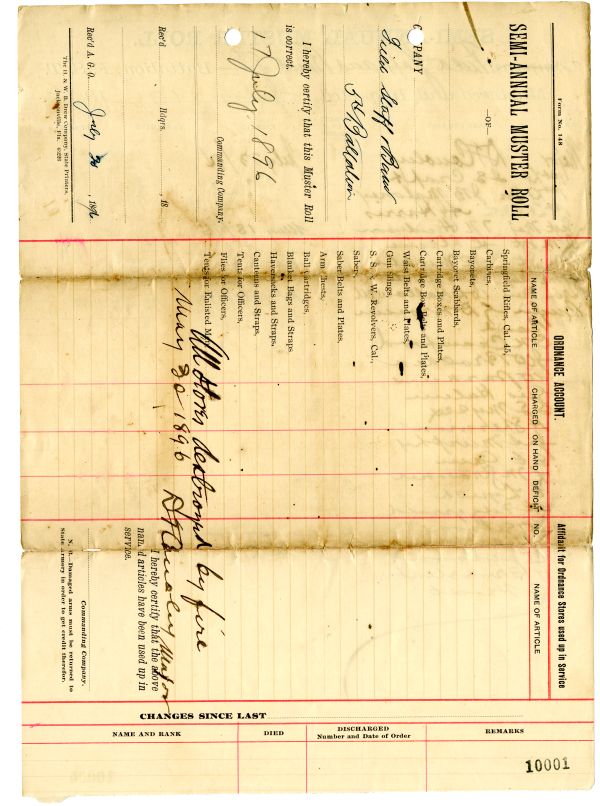 Form No. 148
SEMI-ANNUAL MUSTER ROLL
—OF—
Field Staff Band
COMPANY
5th Battalion
I hereby certify that this Muster Roll
is correct.
17 July. 1896
Commanding Company.
Rec'd Hdqrs. , 18
Rec'd A. G. O. July , 189
The D. & W. B. Drew Company, State Printers,
Jacksonville, Fla.
ORDNANCE ACCOUNT.
NAME OF ARTICLE CHARGED ON HAND DEFICIT
Springfield Rifles, Cal. 45,
Carbines,
Bayonets,
Bayonet Scabbards,
Cartridge Boxes and Plates,
Cartridge Box Belts and Plates,
Waist Belts and Plates,
Gun Slings,
S. & W. Revolvers, Cal.,
Sabers,
Saber Belts and Plates,
Arm Chests,
Ball Cartridges,
Blanket Bags and Straps
Haversacks and Straps,
Canteens and Straps,
Tents for Officers,
Flies for Officers,
Tents for Enlisted M
All Stores destroyed by fire
May 30 1896
Major
Affidavit for Ordnance Stores used up in Service
NO. NAME OF ARTICLE
I hereby certify that the above
named articles have been used up in
service.
Commanding Company.
N. B. Damaged arms must be returned to
State armory in order to get credit therefor.
CHANGES SINCE LAST
NAME AND RANK DIED DISCHARGED REMARKS
Number and Date of Order
10001